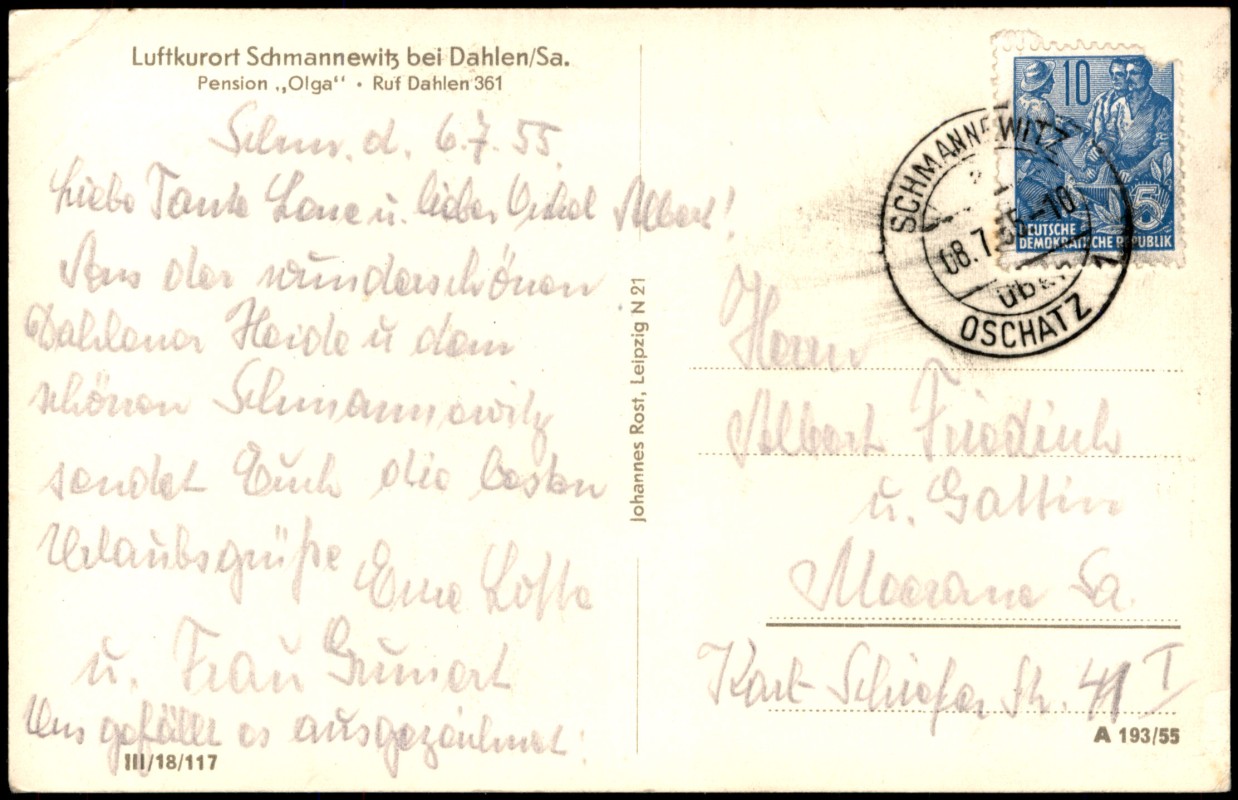 Luftkurort Schmannewitz bei Dahlen/Sa.
Pension „Olga“ • Ruf Dahlen 361
Schm. d. 6.7.55.
Liebe Tante Lene u. lieber Onkel Albert!
Aus der wunderschönen
Dahlener Heide u dem
schönen Schmannewitz
sendet Euch die besten
Urlaubsgrüße Eure Lotte
u. Frau
Uns gefällt es ausgezeichnet!
III/18/117
Johannes Rost, Leipzig N 21
10
5
DEUTSCHE
DEMOKRATISCHE REPUBLIK
SCHMANNEWITZ
08.7.55-10
über
OSCHATZ
Herrn
Albert Friedrich
u. Gattin
Meerane Sa.
Karl Schiefer Str. 41 I
A 193/55